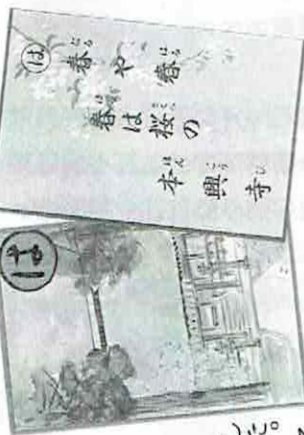 は
春や春
春は桜の
本興寺
は